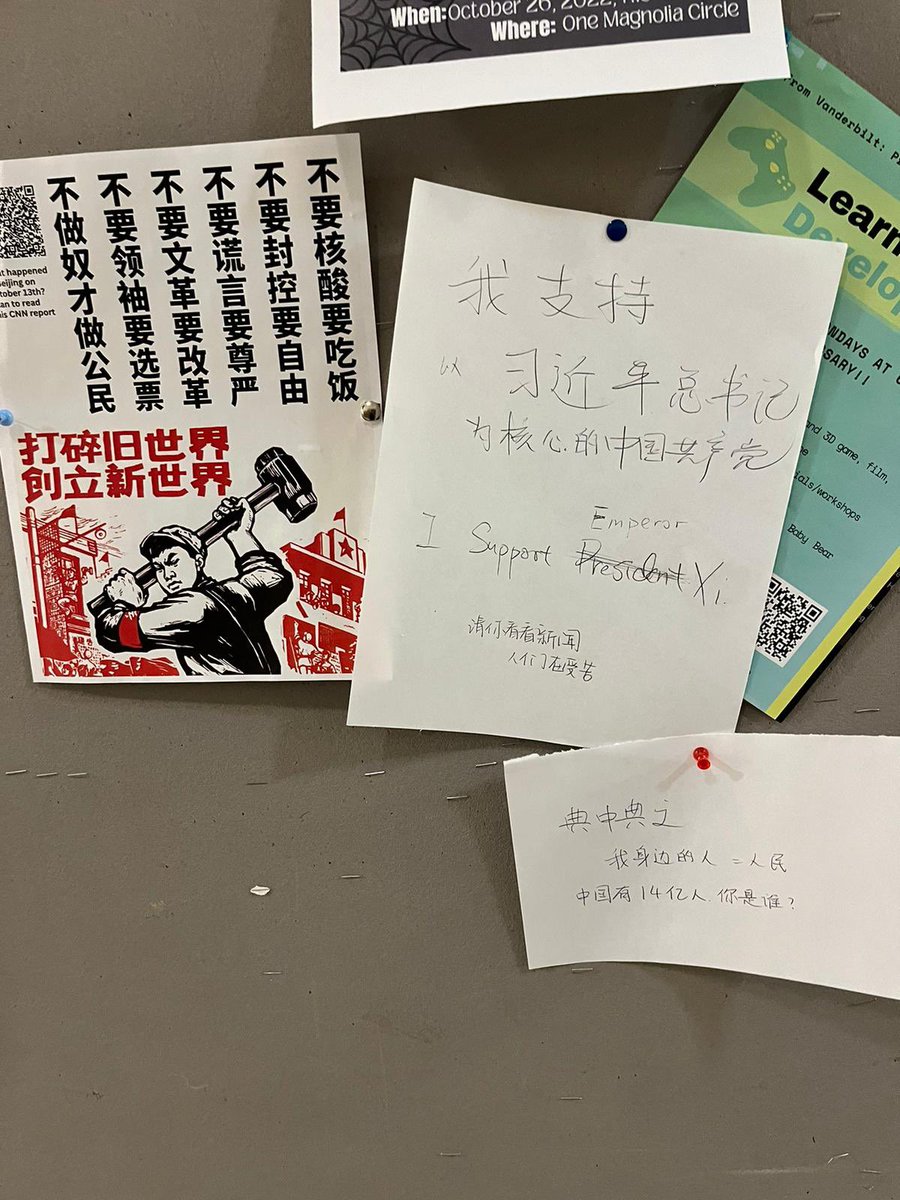 When:October 26, 2022,
Where: One Magnolia Circle
不要核酸要吃饭
不要封控要自由
不要谎言要尊严
不要文革要改革
不要领袖要选票
不做奴才做公民
at happened
eijing on
tober 13th?
an to read
his CNN report
打碎旧世界
创立新世界
我支持
以 习近平总书记
为核心的中国共产党
Emperor
I Support President Xi.
请你看看新闻
人们在受苦
rom Vanderbilt:
Learn
Develop
NDAYS AT
SSARY!!
and 3D game, film,
ials/workshops
Baby Bear
典中典之
我身边的人 = 人民
中国有14亿人.你是谁?